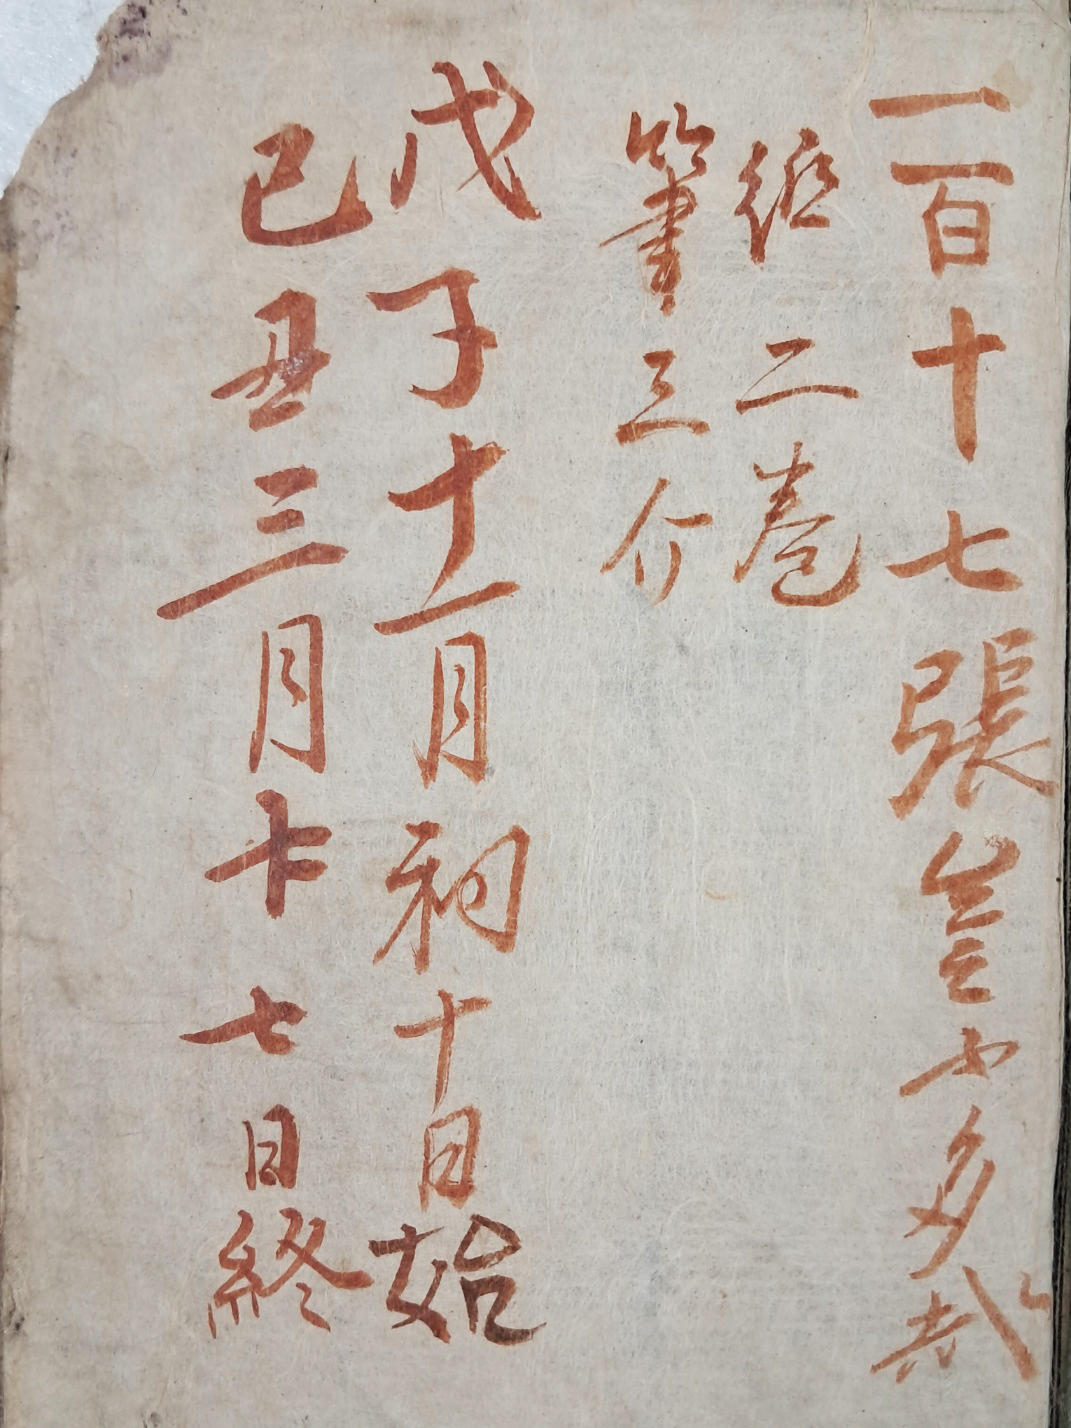 一百十七張豈不多哉
紙二卷
筆三介
戊子十一月初十日始
己丑三月十七日終